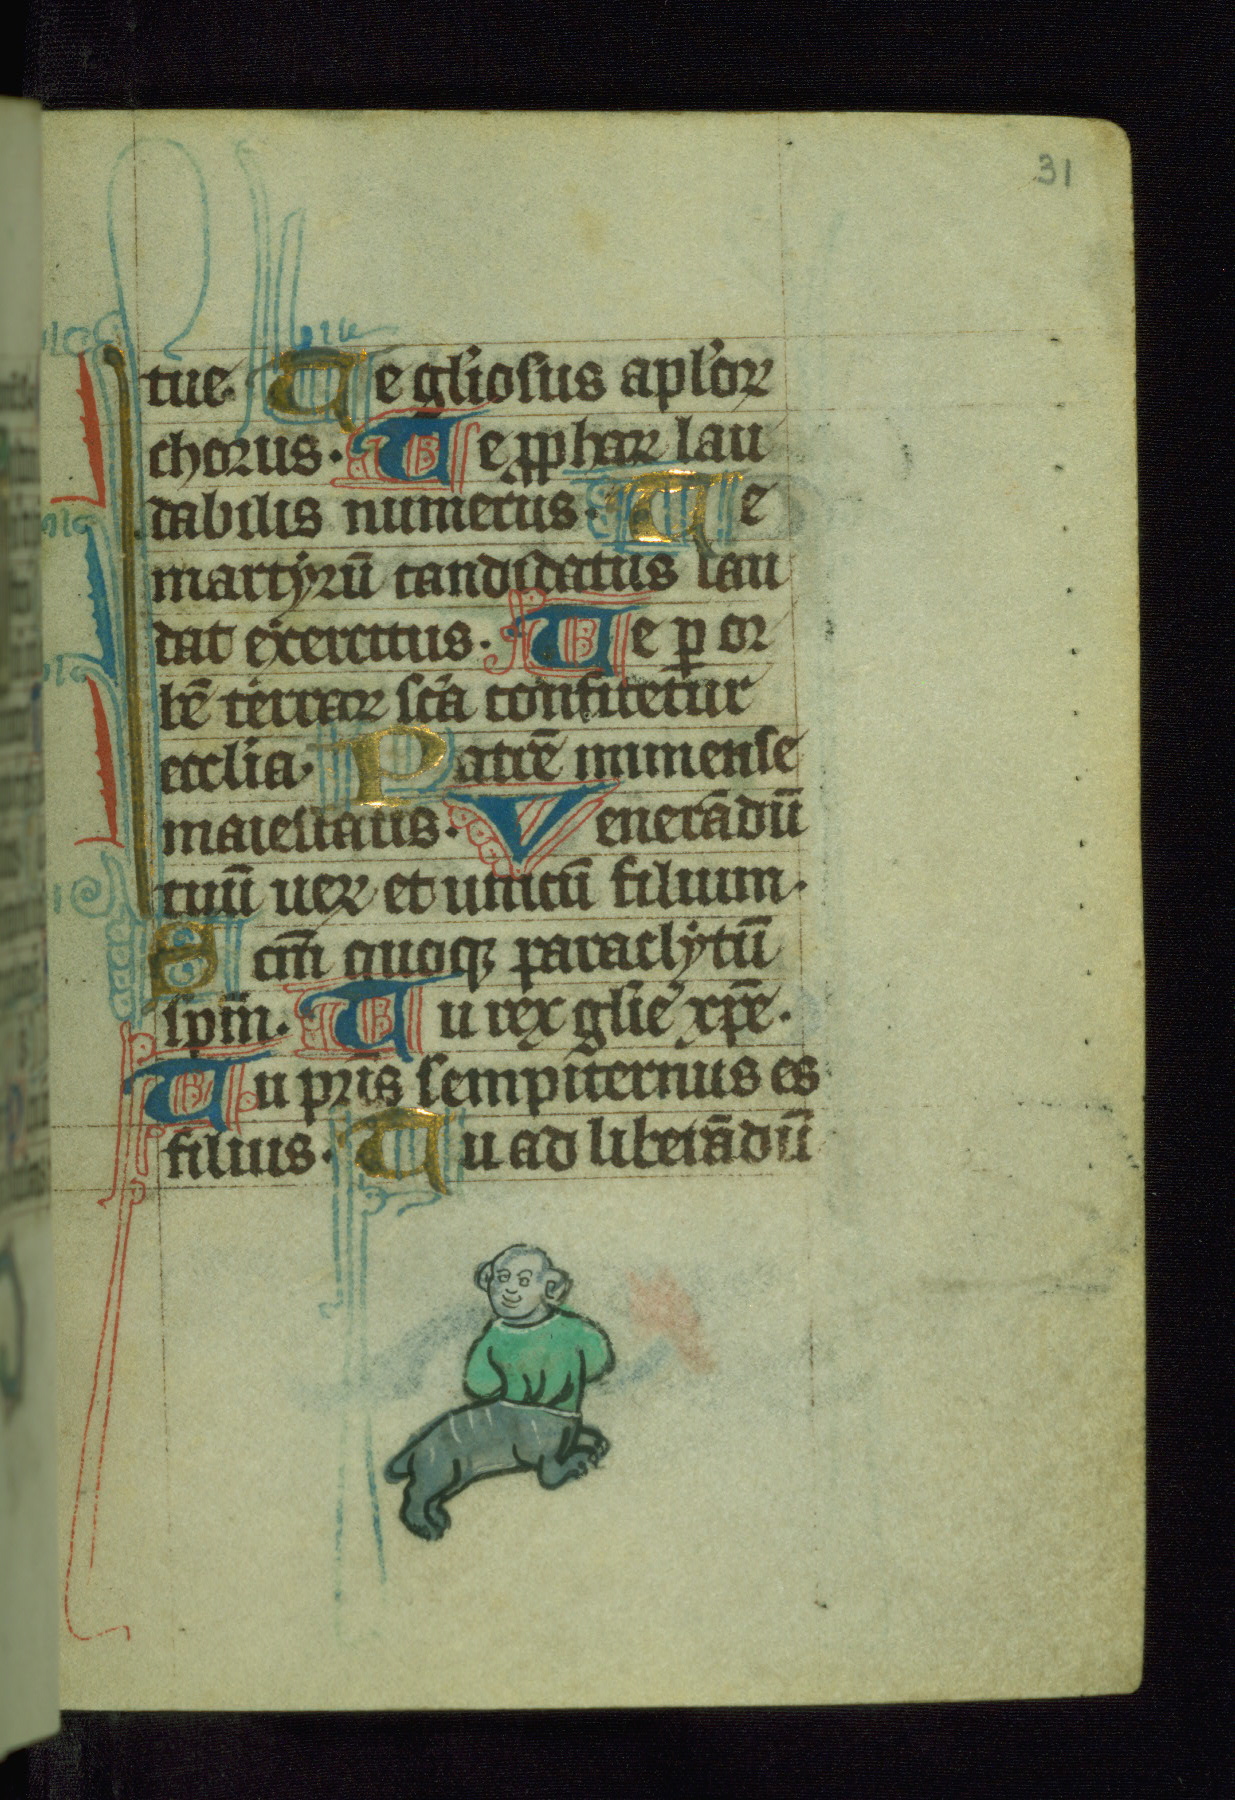 31
tue. Te gl'iosus apl'oꝝ
chorus. Te ꝓphaꝝ lau
dabilis numerus. Te
martẏrū candidatus lau
dat exercitus. Te ꝑ or
bē terraꝝ sc̄a confitetur
eccl'ia. Patrē inmense
maiestatis. Venerādū
tuū ueꝝ et unicū filium.
Scm̄ quoqꝫ paraclẏtū
spm̄. Tu rex gl'ie xp̄e.
Tu pr̄is sempiternus es
filius. Tu ad liberādū